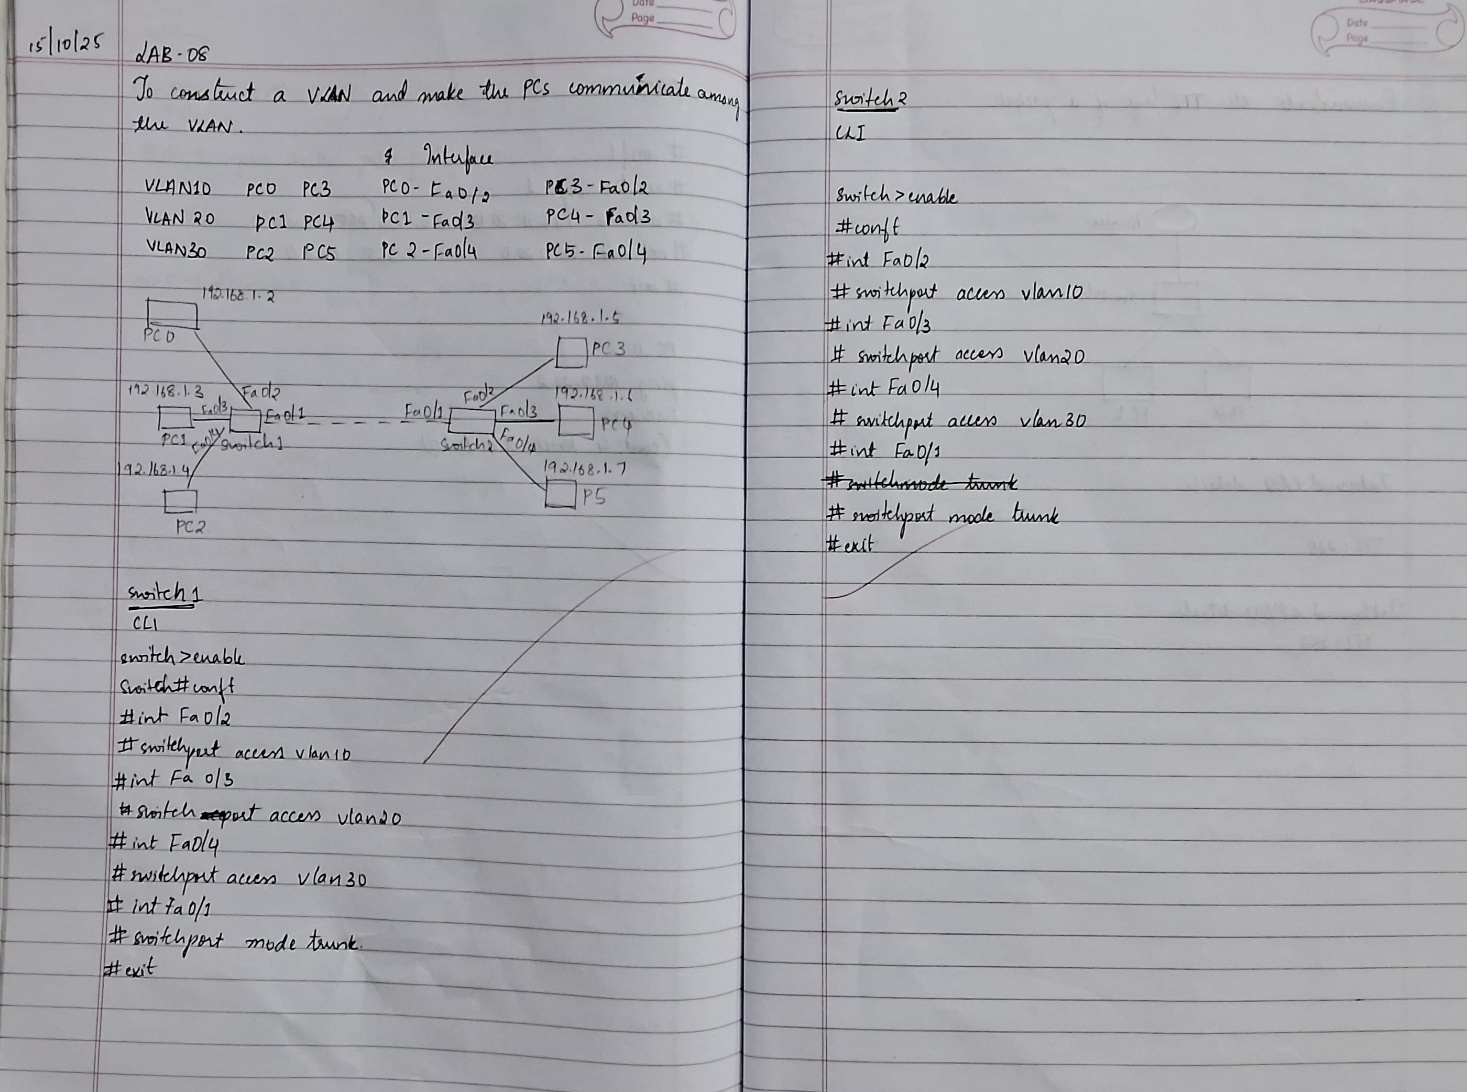 Date
Page
15/10/25
LAB-08
To construct a VLAN and make the PCs communicate among
the VLAN.
& Interface
VLAN10 PC0 PC3 PC0- Fa0/2 PC3-Fa0/2
VLAN 20 PC1 PC4 PC1 -Fa0/3 PC4- Fa0/3
VLAN30 PC2 PC5 PC 2-Fa0/4 PC5- Fa0/4
192.168.1.2
PC0
192.168.1.5
PC3
192.168.1.3
Fa0/2
Fa0/3
Fa0/1
PC1
Fa0/4
Switch1
Fa0/1
Fa0/2
192.168.1.6
Fa0/3
PC4
Switch2
Fa0/4
192.168.1.4
PC2
192.168.1.7
P5
Switch 1
CLI
switch>enable
Switch#conft
#int Fa0/2
#switchport access vlan10
#int Fa 0/3
#switch port access vlan20
#int Fa0/4
#switchport access vlan30
#int Fa0/1
#switchport mode trunk.
#exit
Date
Page
Switch2
CLI
Switch>enable
#conft
#int Fa0/2
#switchport access vlan10
#int Fa0/3
# switchport access vlan20
#int Fa0/4
# switchport access vlan30
#int Fa0/1
# switchmode trunk
# switchport mode trunk
#exit